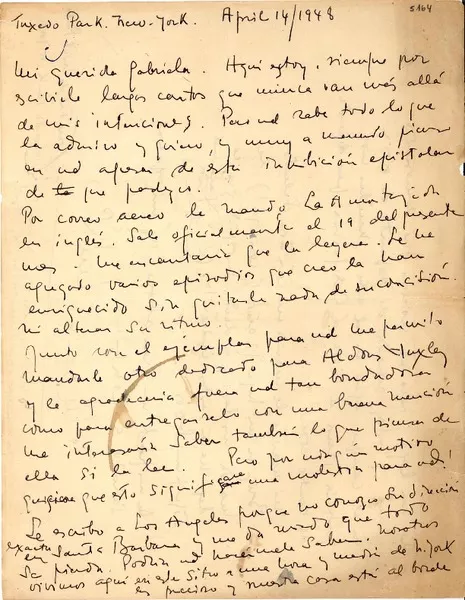 Tuxedo Park. New-York. April 14/1948
5164
Mi querida Gabriela. Aquí estoy, siempre por
escribirle largas cartas que nunca van más allá
de mis intenciones. Pero ud sabe todo lo que
la admiro y quiero, y muy a menudo pienso
en ud apesar de esta inhibición epistolar
de que padezco.
Por correo aereo le mando La Amortajada
en inglés. Sale oficialmente el 19 del presente
mes. Me encantaria que la leyera. Le he
agregado varios episodios que creo la han
enriquecido sin quitarle nada de su concisión
ni alterar su ritmo.
Junto con el ejemplar para ud me permito
mandarle otro dedicado para Aldous Huxley
y le agradeceria fuera ud tan bondadosa
como para entregarselo con una buena mención
me interesaría saber también lo que piensa de
ella si la lee. Pero por ningún motivo
quisiera que esto significara una molestia para ud!
Le escribo a Los Angeles porque no conozco su dirección
exacta en Santa Barbara y me da miedo que todo
se pierda. Podria ud hacermelo saber. Nosotros
vivimos aquí en este sitio a una hora y media de N.York
es precioso y nuestra casa está al borde